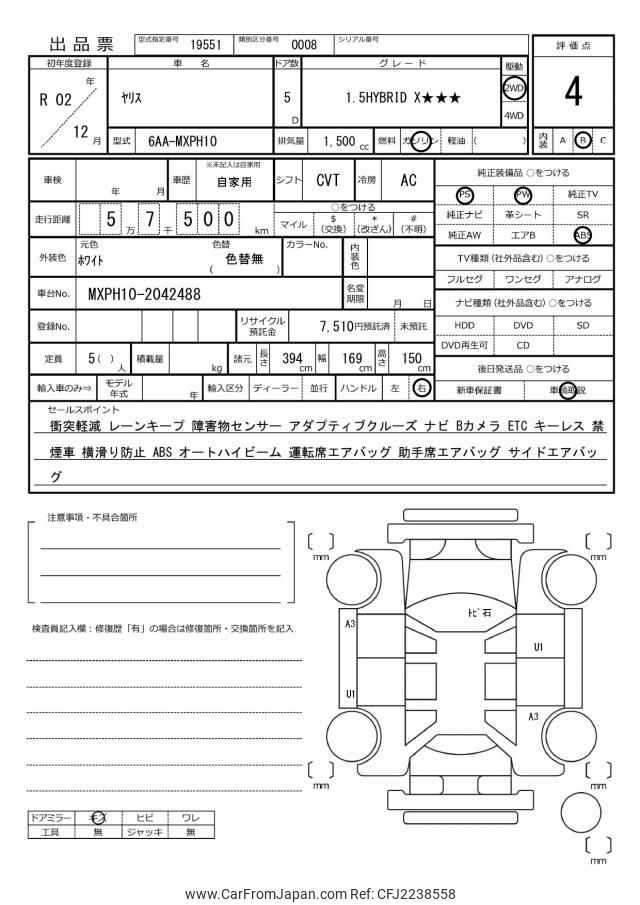 出品票 型式指定番号 19551 類別区分番号 0008 シリアル番号 評価点
初年度登録 車名 ドア数 グレード 駆動
R 02 年 ヤリス 5 D 1.5HYBRID X★★★ 2WD 4
12 月 4WD
型式 6AA-MXPH10 排気量 1,500 cc 燃料 ガソリン 軽油 ( ) 内装 A B C
車検 年 月 車歴 ※未記入は自家用 自家用 シフト CVT 冷房 AC 純正装備品 ○をつける
PS PW 純正TV
走行距離 5 万 7 千 5 0 0 km ○をつける
マイル $(交換) *(改ざん) #(不明)
純正ナビ 革シート SR
純正AW エアB ABS
外装色 元色 ホワイト 色替 ( 色替無 ) カラーNo. 内装色
TV種類 (社外品含む) ○をつける
フルセグ ワンセグ アナログ
車台No. MXPH10-2042488 名変期限 月 日
ナビ種類 (社外品含む) ○をつける
登録No. リサイクル預託金 7,510円預託済 未預託
HDD DVD SD
DVD再生可 CD
定員 5( )人 積載量 kg 諸元 長さ 394 cm 幅 169 cm 高さ 150 cm
後日発送品 ○をつける
輸入車のみ⇒ モデル年式 年 輸入区分 ディーラー 並行 ハンドル 左 右
新車保証書 車輌取説
セールスポイント
衝突軽減 レーンキープ 障害物センサー アダプティブクルーズ ナビ Bカメラ ETC キーレス 禁
煙車 横滑り防止 ABS オートハイビーム 運転席エアバッグ 助手席エアバッグ サイドエアバッ
グ
注意事項・不具合箇所
検査員記入欄：修復歴「有」の場合は修復箇所・交換箇所を記入
mm mm
ﾄﾋﾞ石
A3
U1
U1
A3
mm mm
mm
ドアミラー キズ ヒビ ワレ
工具 無 ジャッキ 無
www.CarFromJapan.com Ref: CFJ2238558